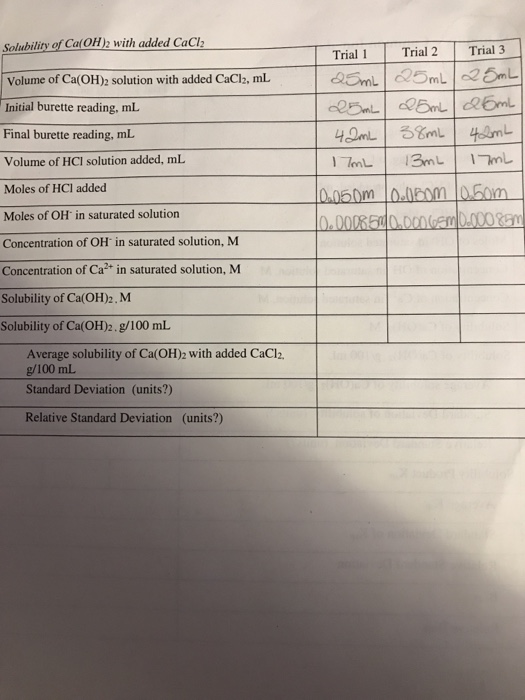 Solubility of Ca(OH)₂ with added CaCl₂
Trial 1 Trial 2 Trial 3
Volume of Ca(OH)₂ solution with added CaCl₂, mL 25mL 25mL 25mL
Initial burette reading, mL 25mL 25mL 25mL
Final burette reading, mL 42mL 38mL 42mL
Volume of HCl solution added, mL 17mL 13mL 17mL
Moles of HCl added 0.050m 0.050m 0.50m
Moles of OH⁻ in saturated solution 0.00085m 0.00065m 0.00085m
Concentration of OH⁻ in saturated solution, M
Concentration of Ca²⁺ in saturated solution, M
Solubility of Ca(OH)₂, M
Solubility of Ca(OH)₂, g/100 mL
Average solubility of Ca(OH)₂ with added CaCl₂,
g/100 mL
Standard Deviation (units?)
Relative Standard Deviation (units?)